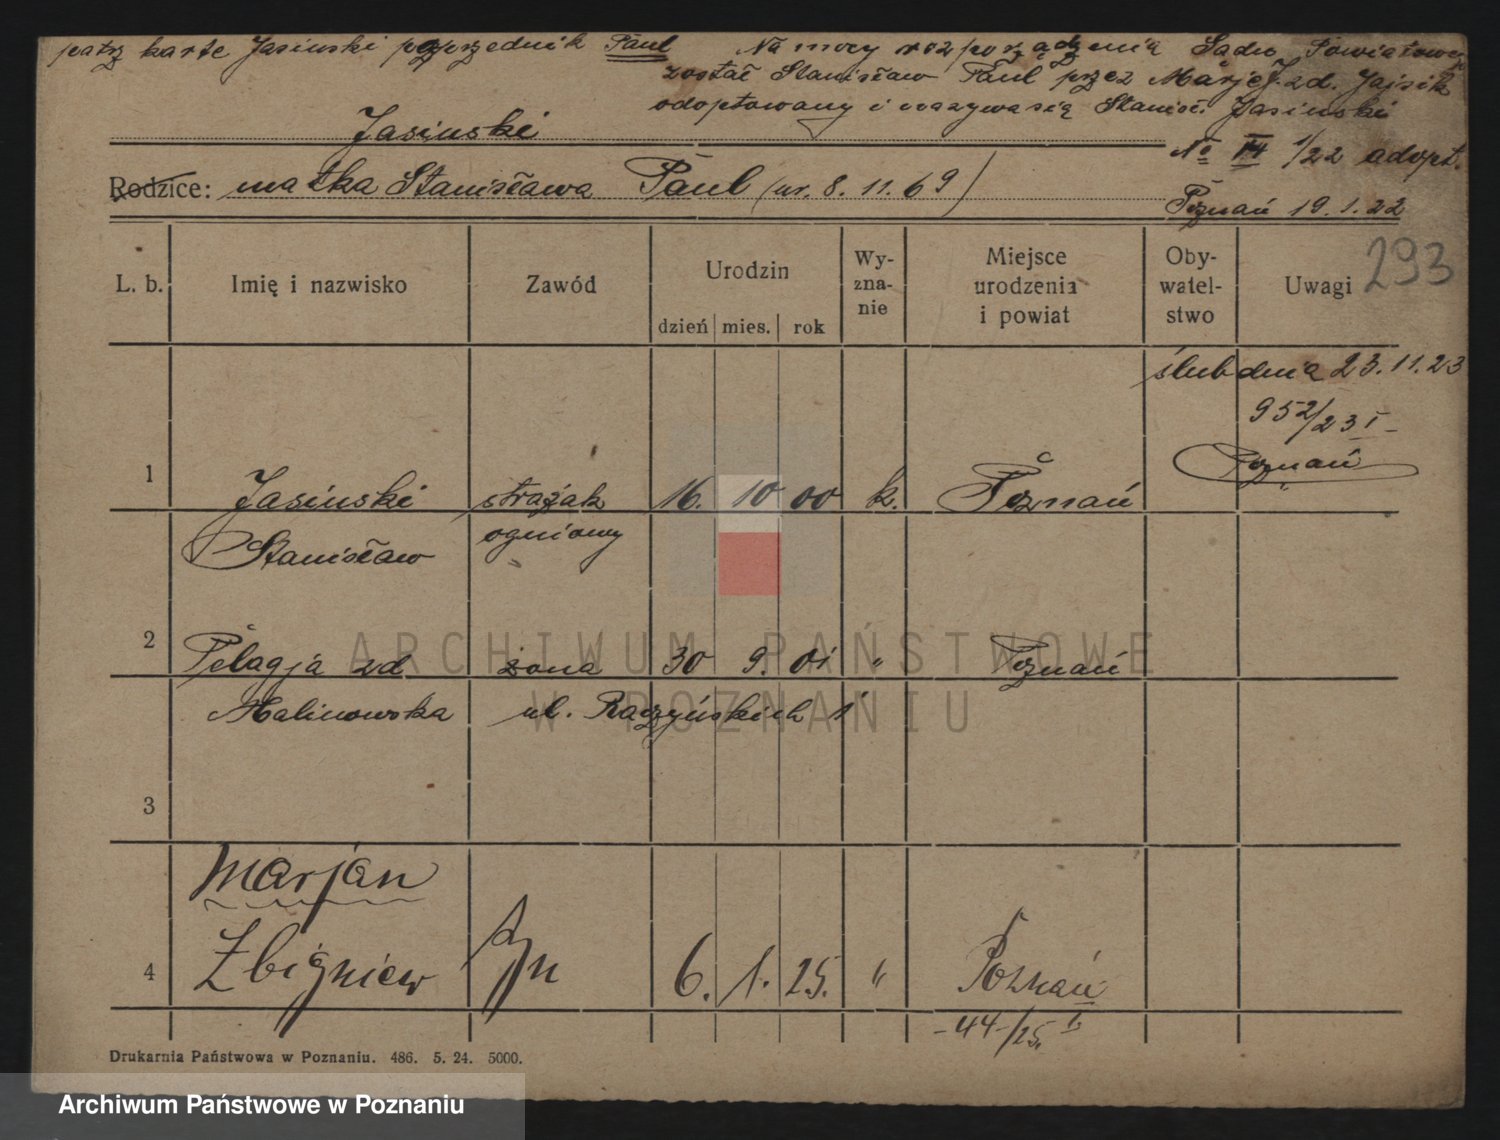 patrz karte Jasinski poprzednik Paul
Na mocy rozporządzenia Sądu Powiatowego
został Stanisław Paul przez Marje J. zd. Jajsik
adoptowany i nazywa się Stanisł. Jasinski
Jasinski
No III 1/22 adopt.
Rodzice: matka Stanisława Paul (ur. 8. 11. 69)
Poznań 19. 1. 22
293
L. b. Imię i nazwisko Zawód Urodzin Wy-zna-nie Miejsce urodzenia i powiat Oby-watel-stwo Uwagi
dzień mies. rok
ślub dnia 23. 11. 23
952/23 I
Poznań
1 Jasinski strażak 16. 10 00 k. Poznań
Stanisław ogniowy
2 Pelagja zd żona 30 9. 01 " Poznań
Malinowska ul. Raczyńskich 1
3
Marjan
4 Zbigniew syn 6. 1. 25. " Poznań
-44-/25. I
Drukarnia Państwowa w Poznaniu. 486. 5. 24. 5000.
ARCHIWUM PAŃSTWOWE
W POZNANIU
Archiwum Państwowe w Poznaniu